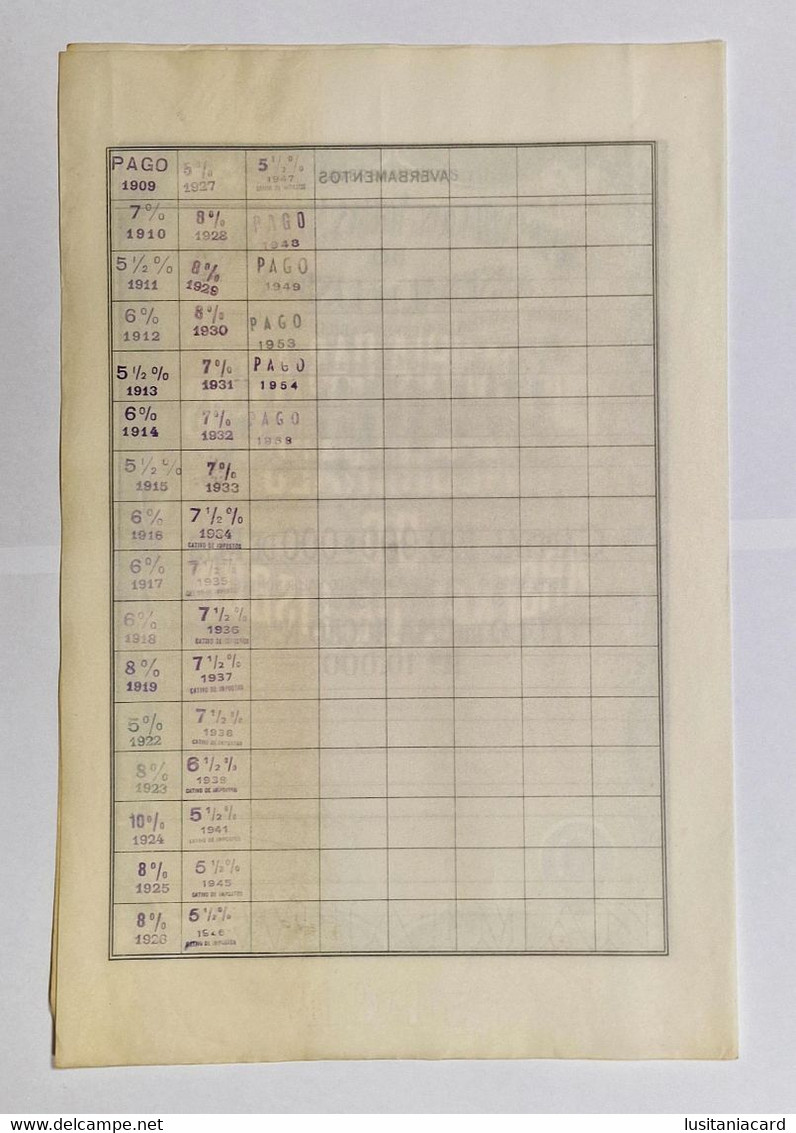 PAGO
1909
5%
1927
5 1/2 %
1947
AVERBAMENTOS
7%
1910
8%
1928
PAGO
1948
5 1/2 %
1911
8%
1929
PAGO
1949
6%
1912
8%
1930
PAGO
1953
5 1/2 %
1913
7%
1931
PAGO
1954
6%
1914
7%
1932
PAGO
5 1/2 %
1915
7%
1933
6%
1916
7 1/2 %
1934
CATIVO DE IMPOSTOS
6%
1917
7 1/2
1935
6%
1918
7 1/2 %
1936
CATIVO DE IMPOSTOS
8%
1919
7 1/2 %
1937
CATIVO DE IMPOSTOS
5%
1922
7 1/2 %
1938
CATIVO DE IMPOSTOS
8%
1923
6 1/2 %
1939
CATIVO DE IMPOSTOS
10%
1924
5 1/2 %
1941
CATIVO DE IMPOSTOS
8%
1925
5 1/2 %
1945
CATIVO DE IMPOSTOS
8%
1926
5 1/2 %
1946
CATIVO DE IMPOSTOS
delcampe.net
lusitaniacard